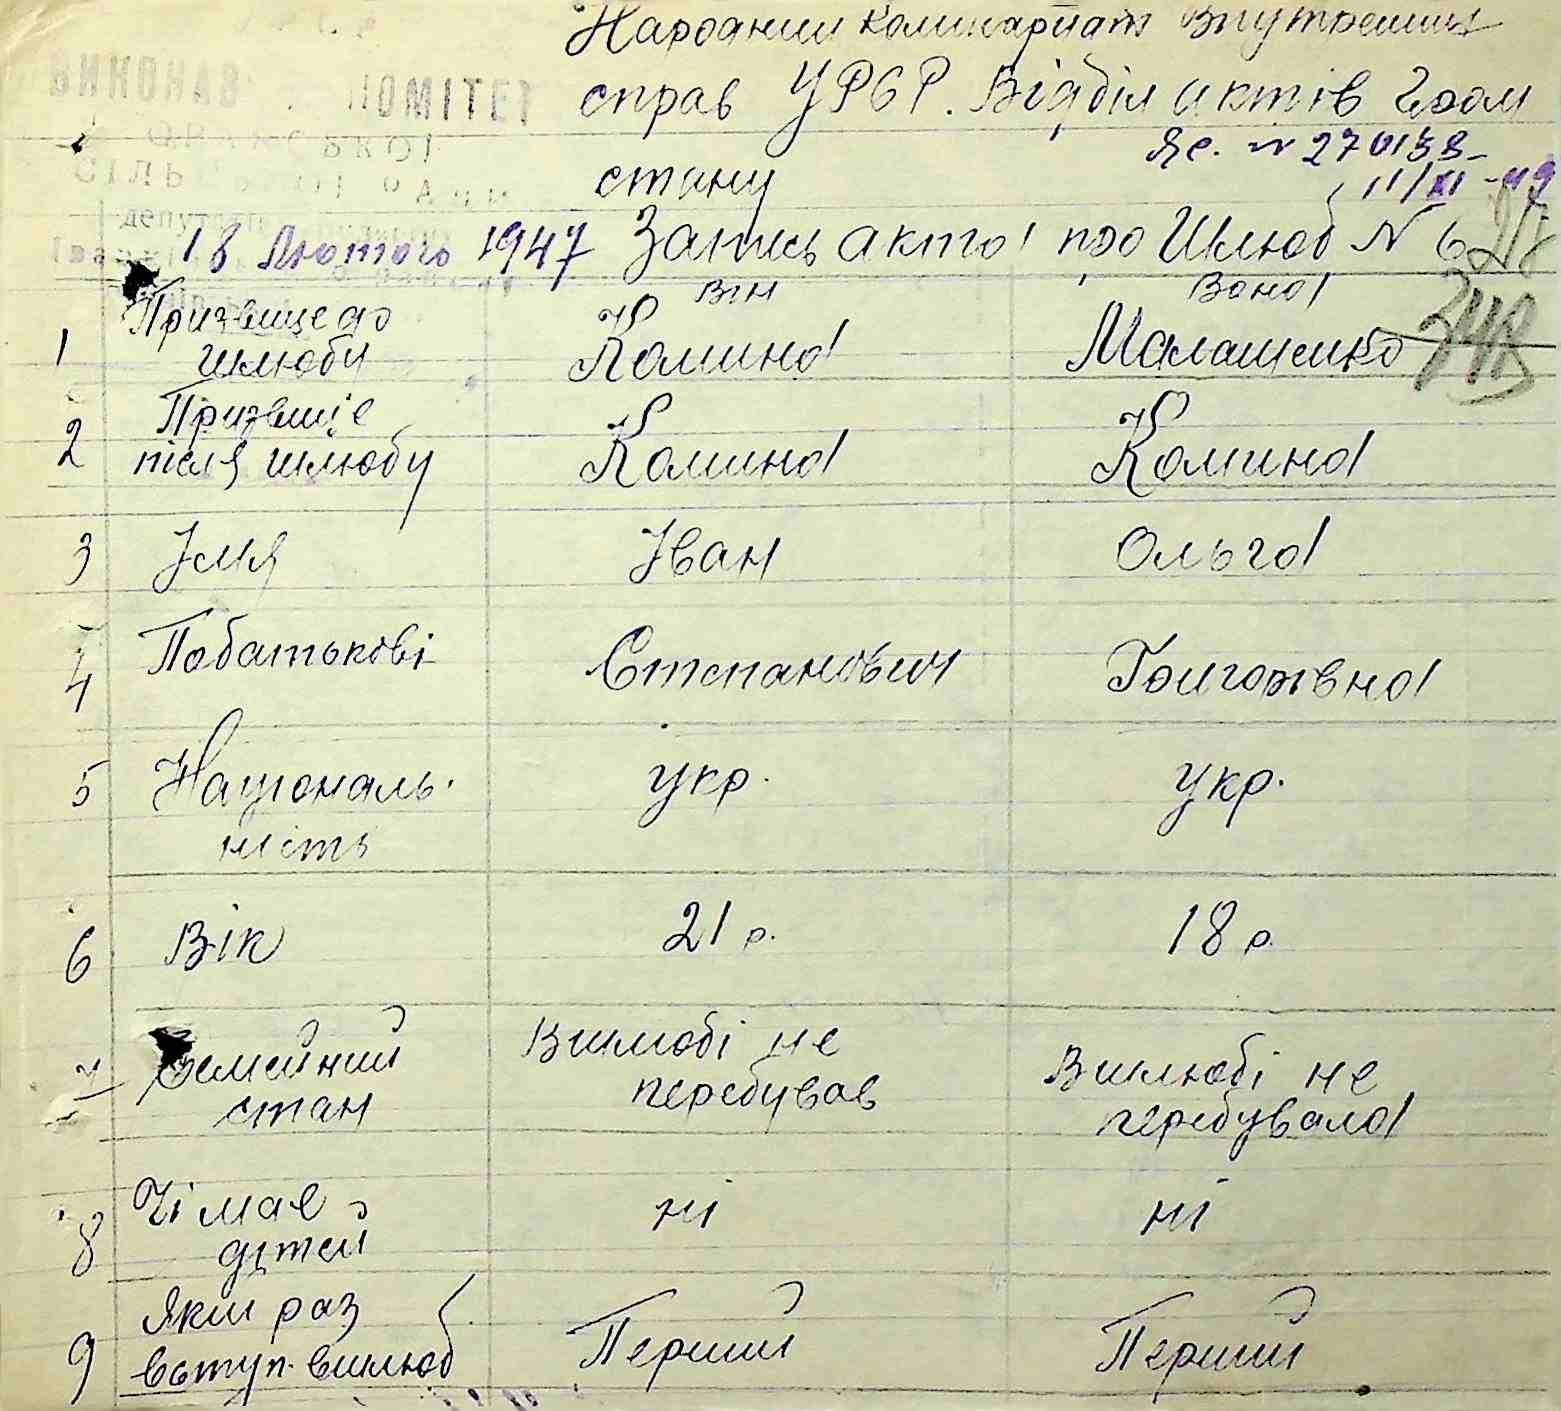 Народний комисаріат Внутрешніх
справ УРСР. Відділ актів гром
стану
18 Лютого 1947 Запись акта про Шлюб N 6
Він Вона
1 Призвище до шлюбу Комина Малашенко
2 Призвище після шлюбу Комина Комина
3 Імя Іван Ольга
4 Побатькові Степанович Григорівна
5 Національ- ність укр. укр.
6 Вік 21 р. 18 р.
7 Семейний стан Вшлюбі не перебував Вшлюбі не перебувала
8 Чі має дітей ні ні
9 Який раз вступ. вшлюб Перший Перший